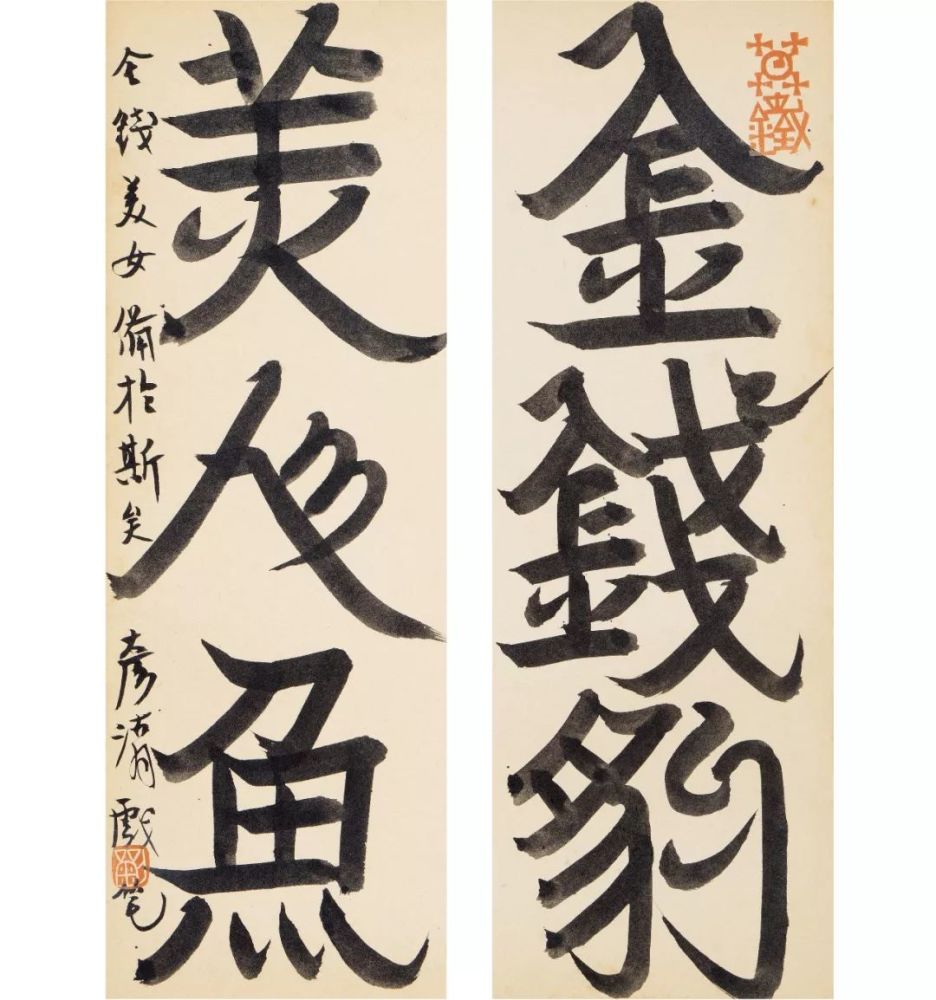 金錢豹
美人魚
金錢美女備於斯矣
彥 戲笔